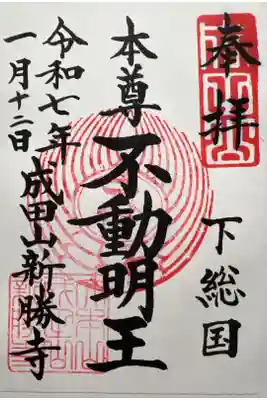 奉拝
下総国
本尊不動明王
成田山新勝寺
令和七年
一月十二日